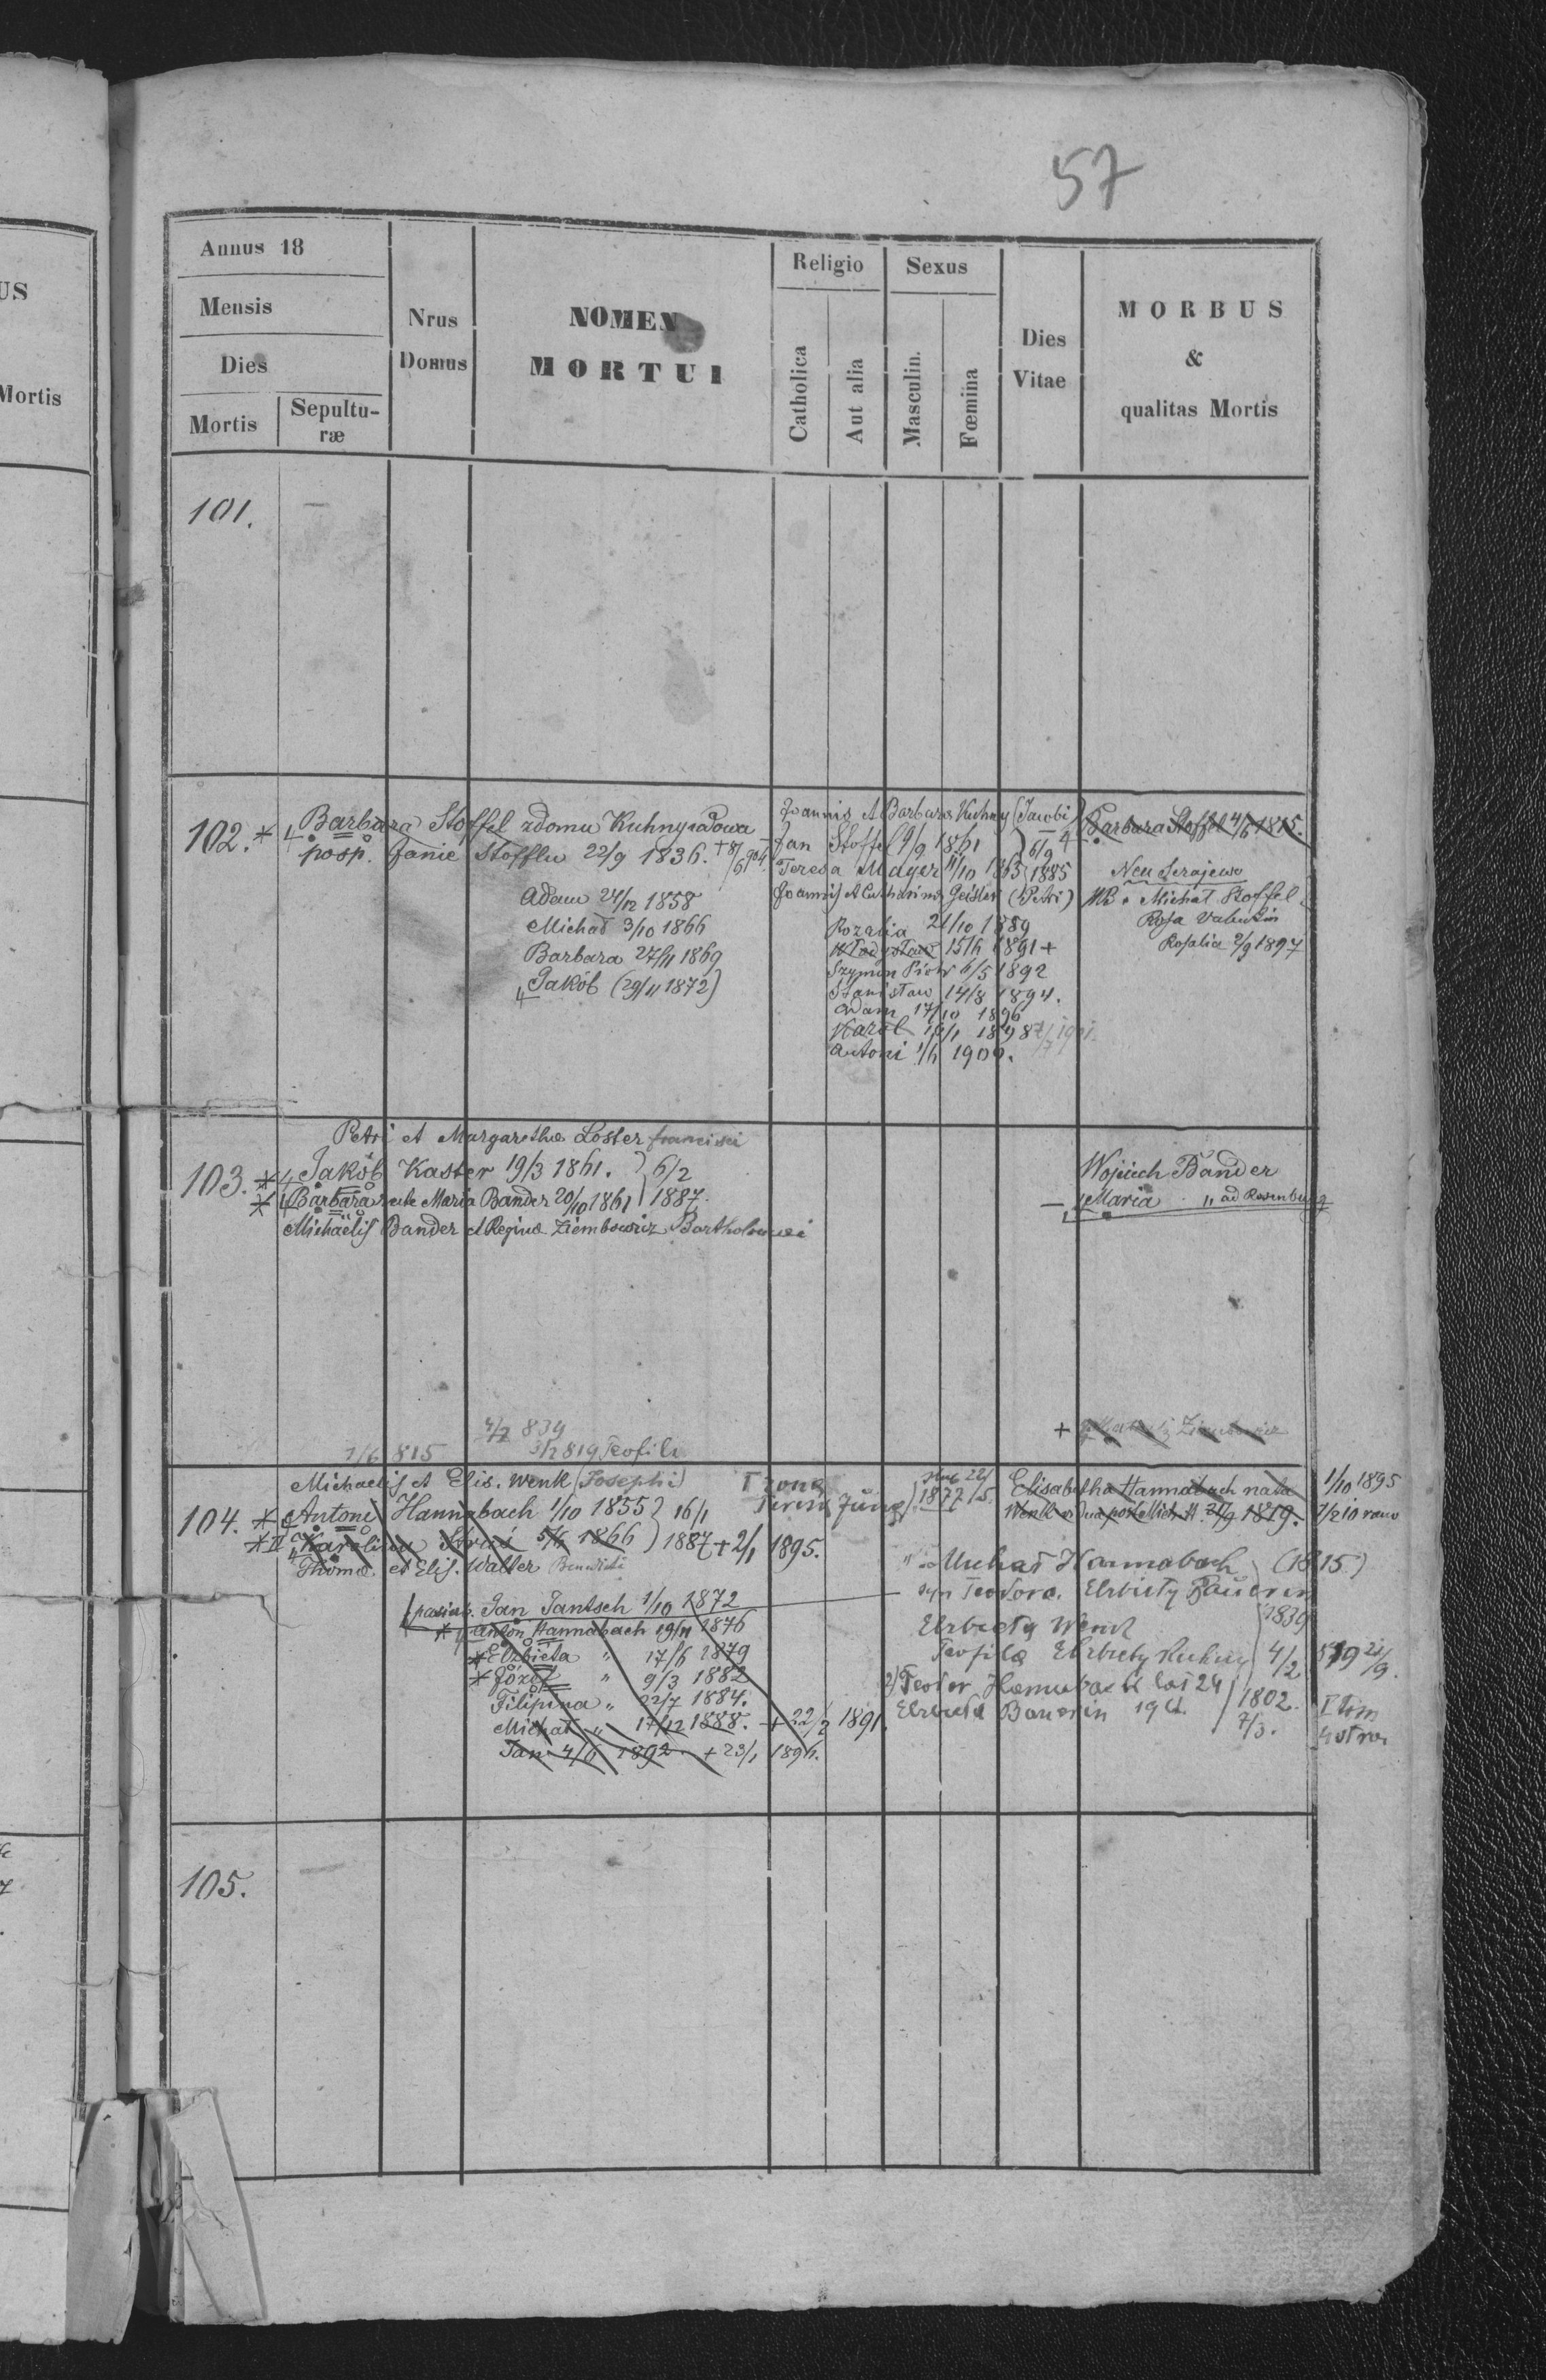 57
US
Mortis
Annus 18
Mensis
Dies
Mortis
Sepultu-
ræ
Nrus
Domus
NOMEN
MORTUI
Religio
Catholica
Aut alia
Sexus
Masculin.
Fœmina
Dies
Vitae
MORBUS
&
qualitas Mortis
101.
102. * Barbara Stoffel z domu Kuhny wdowa
posp. Janie Stofflu 22/9 1836.
Adam 24/12 1858
Michał 3/10 1866
Barbara 27/11 1869
Jakób (29/11 1872)
Joannis et Barbara Kuhny (Jacobi)
Jan Stoffel 9/9 1861 } 6/9
Teresa Mayer 11/10 1865 } 1885
Joannis et Catharina Geisler (Petri)
Rozalia 21/10 1889
Władysław 15/4 1891 +
Szymon Piotr 6/5 1892
Stanisław 14/8 1894.
Adam 17/10 1896
Karol 19/1 1898
Antoni 1/4 1900.
Barbara Stoffel 4/6 1815.
Neu Serajewo
NB. Michał Stoffel
Rosa Valentin
Rosalia 2/9 1897
Petri et Margaretha Loster Francisci
103. * Jakób Kaster 19/3 1861. } 6/2
* Barbara recte Maria Bander 20/10 1861 } 1887.
Michaelis Bander et Regina Ziembowicz Bartholomaei
Wojciech Bander
Maria " ad Rosenburg
4/2 839
1/6 815 3/2 819 Teofili
Michaelis et Elis. Wenk (Josephi)
104. * Antoni Hannabach 1/10 1855 } 16/1
* II Karolina 1866 } 1887 + 2/1 1895.
Thoma et Elis. Walter Benedicti
pasierb. Jan Jantsch 1/10 1872
* Anton Hannabach 19/11 1876
* Elżbieta " 17/6 1879
* Józef " 9/3 1882
Filipina " 22/7 1884.
Michał " 17/12 1888. + 22/2 1891.
Jan 4/6 1892. + 23/1 1896.
I żona
Jung
1877
Elisabetha Hannabach nata 1/10 1895
Wenk vidua post Mich. H. 21/9 1819. 1/2 10 rano
Michał Hannabach (1815)
syn Teodora. Elżbiety Bauerin
Elżbieta Wenk } 1839
Teofila Elżbiety Kuhny 4/2 819 21/9.
2) Teodor Hannabach lat 24 } 1802. I tom
Elżbieta Bauerin 19 l. } 7/3.
105.